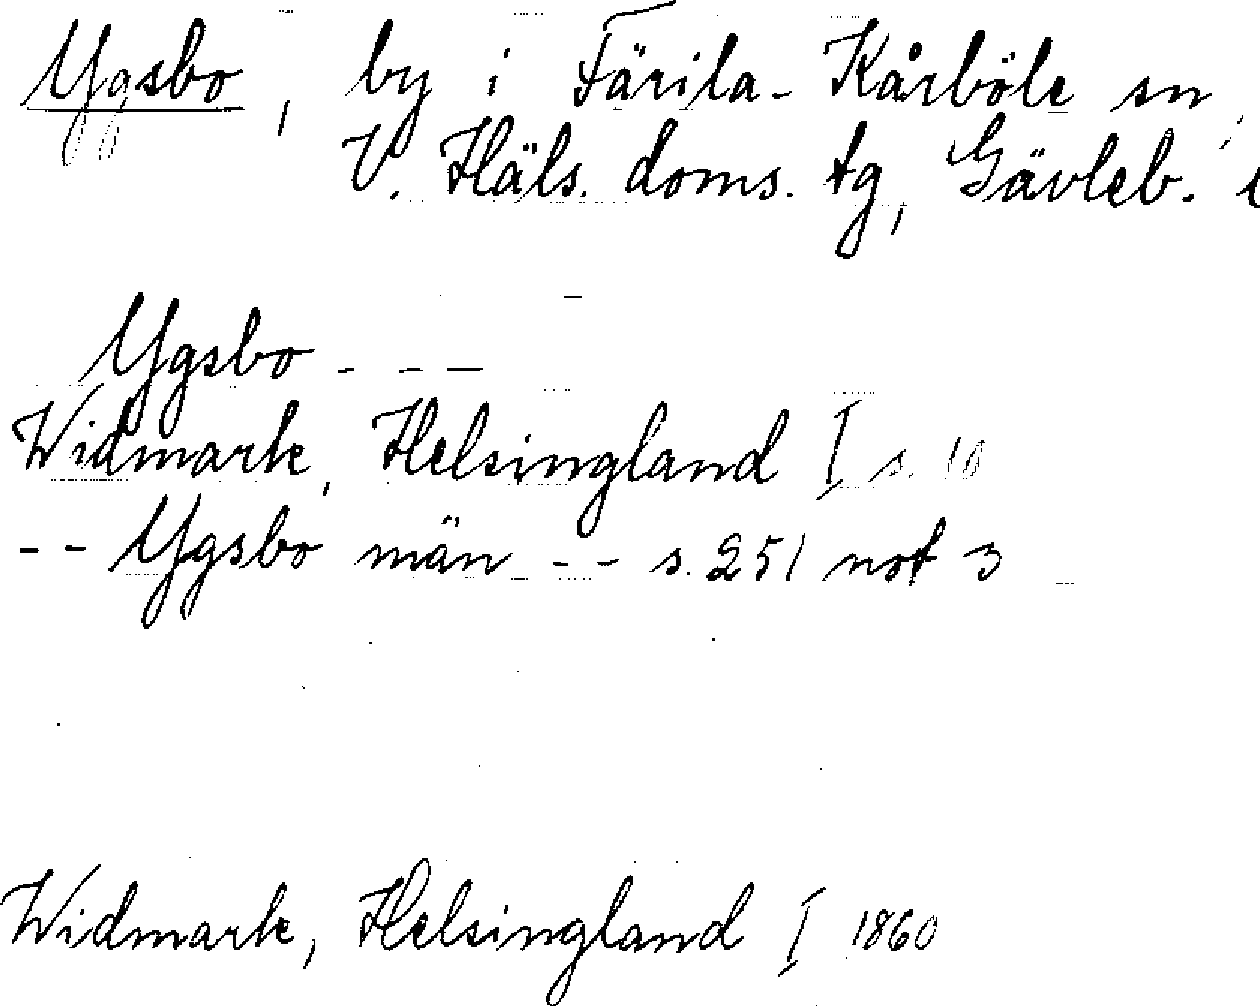 Ygsbo, by i Färila-Kårböle sn,
V. Häls. doms. tg, Gävleb.
Ygsbo - - -
Widmark, Helsingland I s. 10
- - Ygsbo män - - s. 251 not 3
Widmark, Helsingland I 1860